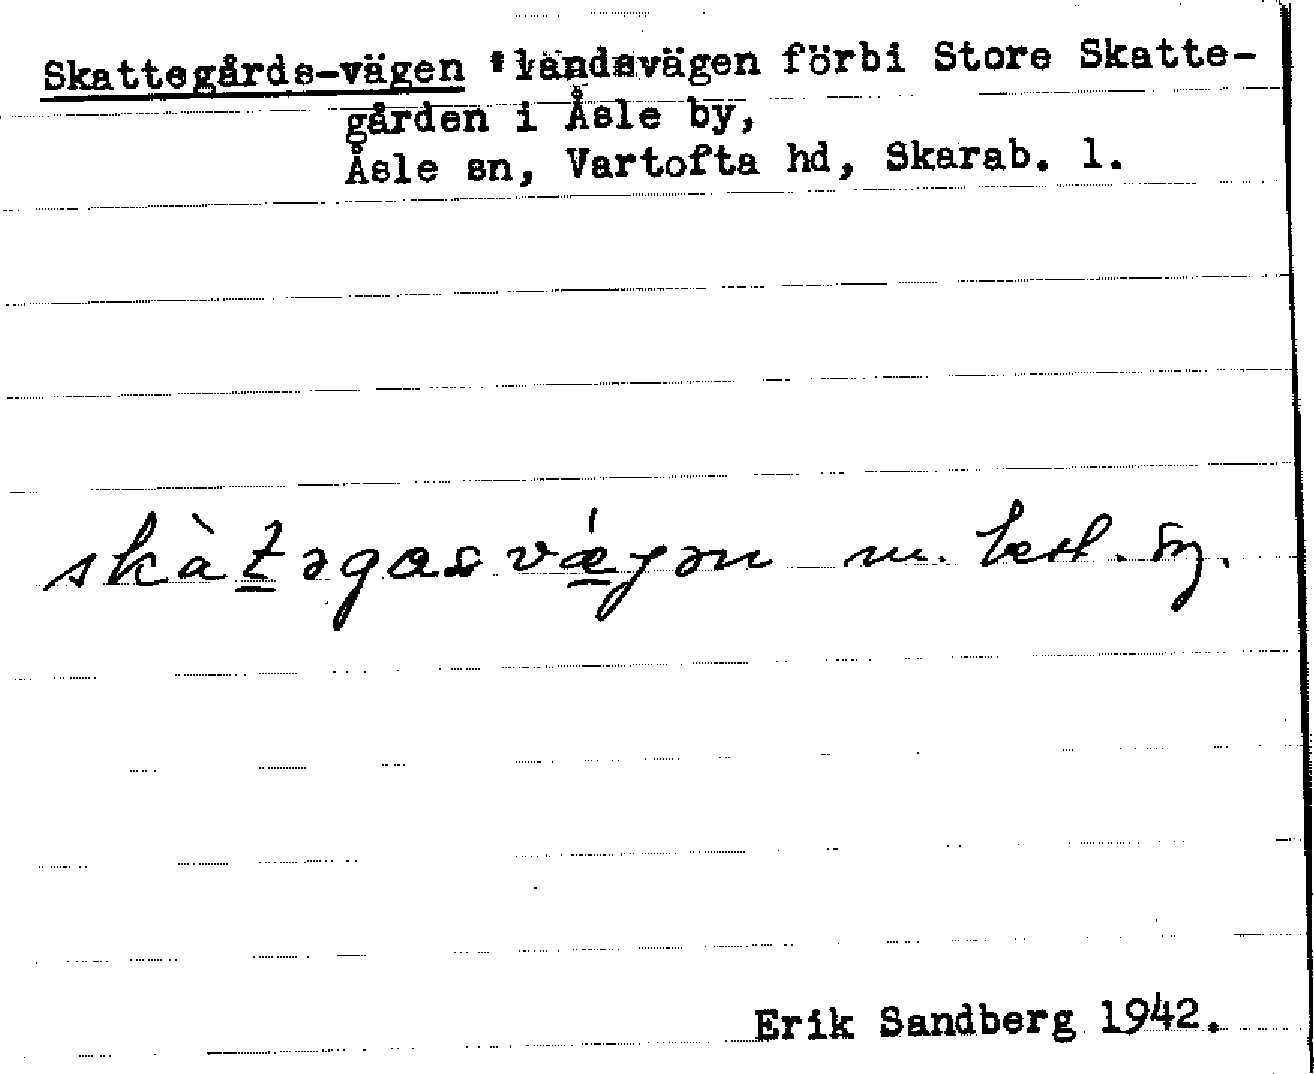 Skattegårds-vägen 'landsvägen förbi Store Skatte-
gården i Åsle by,
Åsle sn, Vartofta hd, Skarab. l.
skàt̲əgasvǽ̲gən m. best. sg.
Erik Sandberg 1942.